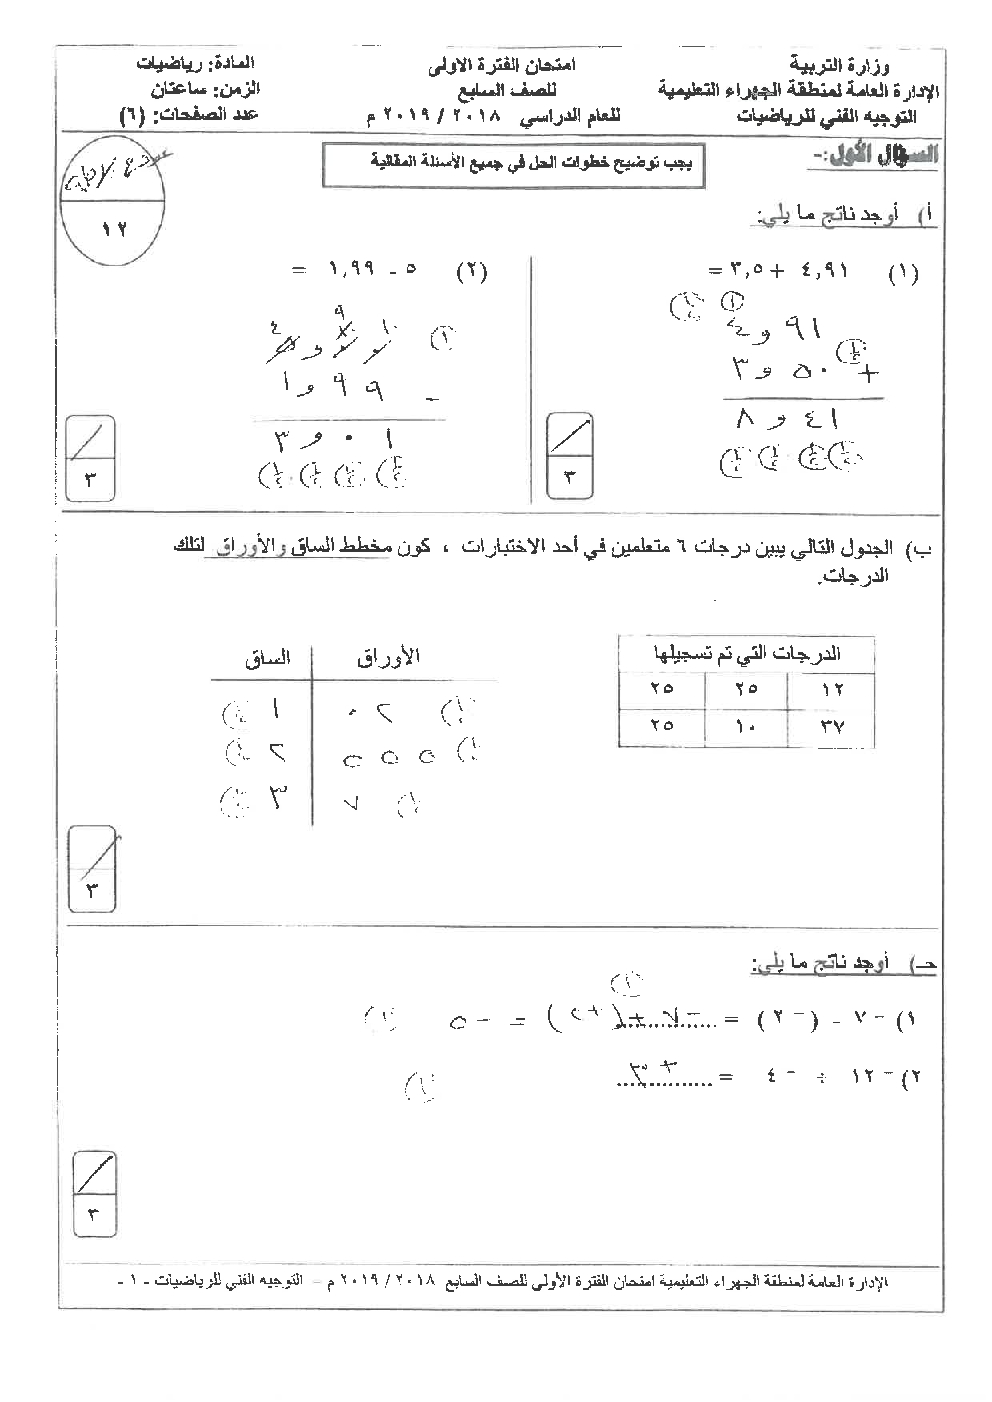 وزارة التربية
الإدارة العامة لمنطقة الجهراء التعليمية
التوجيه الفني للرياضيات
امتحان الفترة الاولى
للصف السابع
للعام الدراسي ٢٠١٨ / ٢٠١٩ م
المادة: رياضيات
الزمن: ساعتان
عدد الصفحات: (٦)
السؤال الأول:-
يجب توضيح خطوات الحل في جميع الأسئلة المقالية
١٢
أ) أوجد ناتج ما يلي:
(١) ٤,٩١ + ٣,٥ =
٤ و ٩١
٣ و ٥٠ +
٨ و ٤١
٣
(٢) ٥ - ١,٩٩ =
١ و ٩٩ -
٣ و ٠١
٣
ب) الجدول التالي يبين درجات ٦ متعلمين في أحد الاختبارات ، كون مخطط الساق والأوراق لتلك
الدرجات.
الدرجات التي تم تسجيلها
١٢ ٢٥ ٢٥
٣٧ ١٠ ٢٥
الساق الأوراق
١ ٠ ٢
٢ ٥ ٥ ٥
٣ ٧
٣
حـ) أوجد ناتج ما يلي:
١) -٧ - (-٢) = -٧ + (+٢) = -٥
٢) -١٢ ÷ -٤ = +٣
٣
الإدارة العامة لمنطقة الجهراء التعليمية امتحان الفترة الأولى للصف السابع ٢٠١٨ / ٢٠١٩ م – التوجيه الفني للرياضيات - ١ -